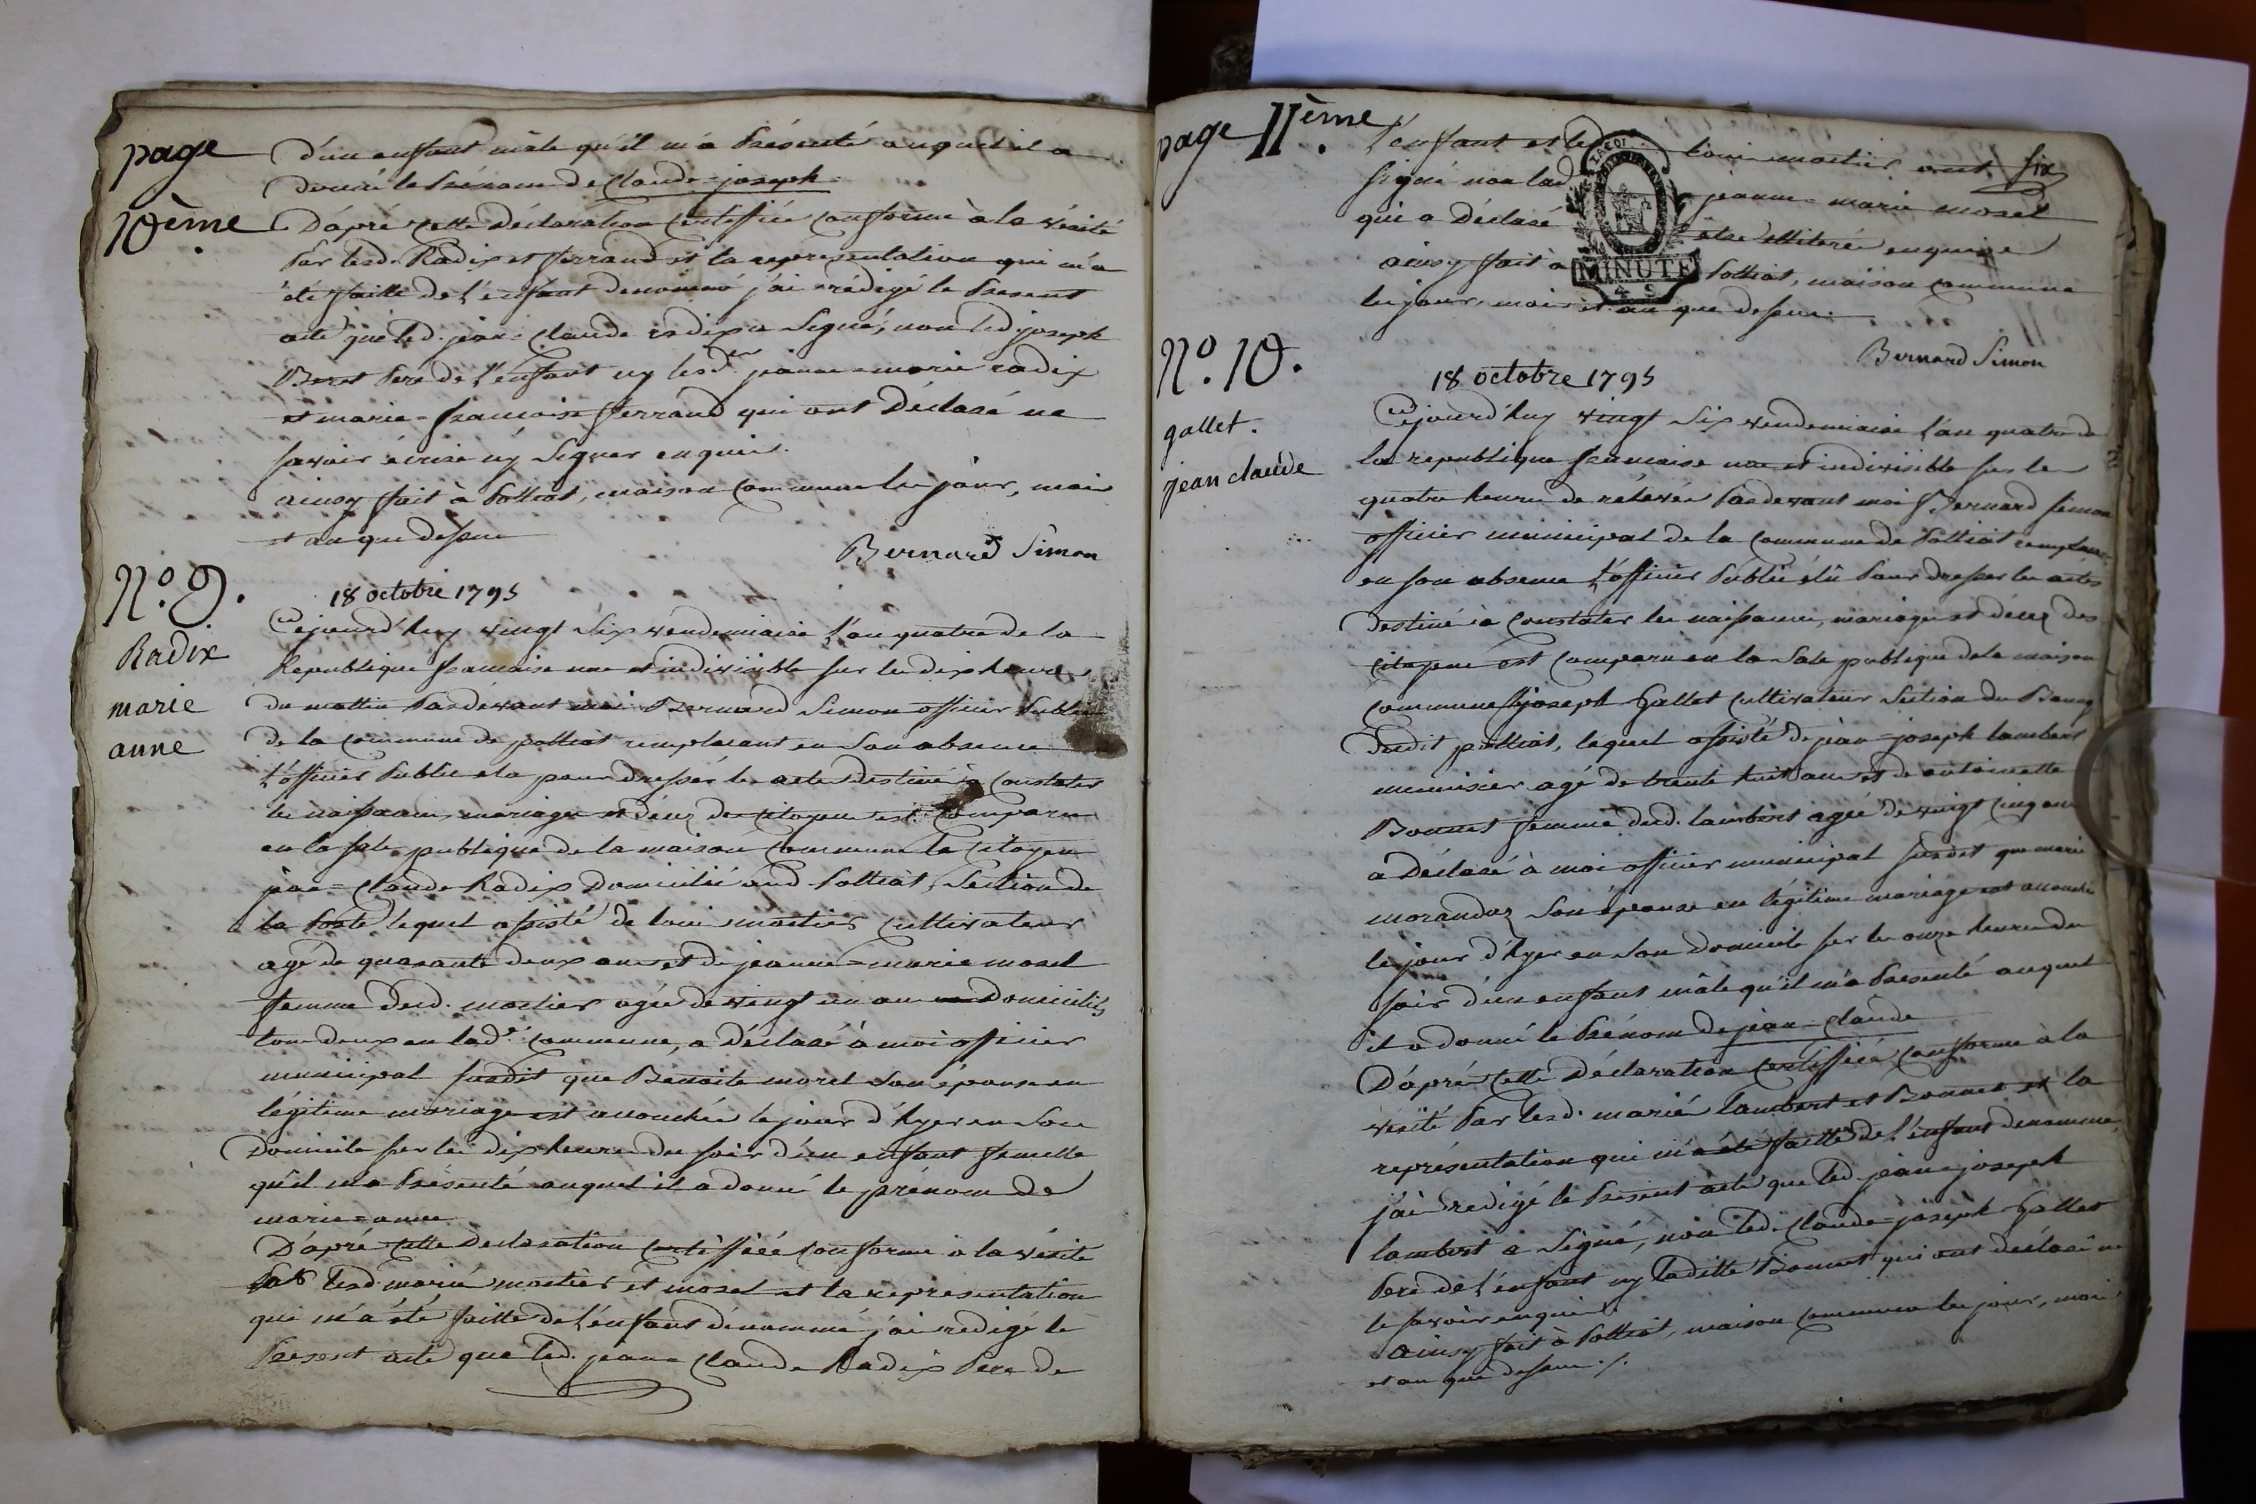 page
10ème
D'un enfant mâle qu'il m'a Présenté auquel il a
donné le Prénom de Claude-joseph
D'apré cette Déclaration Certiffiée conforme à la vérité
Par lesd. Radix et ferrand et la representation qui m'a
été faitte de l'enfant denommé j'ai redigé le Present
acte que led. jean-Claude radix a Signé, non led joseph
Beret Pere de l'enfant ny lesd. jeanne-marie radix
et marie-francoise ferrand qui ont Déclaré ne
savoir écrire ny Signer enquis.
ainsy fait à Polliat, maison Commune les jour, mois
et an que dessus
Bernard Simon
No. 9.
Radix
marie
anne
18 octobre 1795
Cejourd'huy vingt Six vendemiaire l'an quatre de la
Republique francaise une et indivisible sur les dix heures
du mattin Pardevant moi Bernard Simon officier Public
de la commune de polliat remplacant en Son absence
l'officier Public elu pour dresser les actes destiné à Constater
les naissances, mariages et décez des citoyens est Comparu
en la sale publique de la maison Commune le Citoyen
jean-Claude Radix Domicilié aud Polliat, Section de
la Poste lequel assisté de loui mortier Cultivateur
agé de quarante deux ans et de jeanne-marie morel
femme dud. mortier agée de vingt un an Domiciliés
tous deux en lad. Commune, a Déclaré à moi officier
municipal susdit que Benoite morel Son épouse en
légitime mariage est accouchée le jour d'hyer en Son
Domicile sur les dix heures du soir d'un enfant femelle
qu'il m'a Présenté auquel il a donné le prénom de
marie-anne
D'apré Cette Declaration Certiffiée Conforme à la vérité
Par lesd. mariés mortier et morel et la representation
qui m'a été faitte de l'enfant dénommé j'ai redigé le
Present acte que led. jean-Claude Radix Pere de
page 11ème.
l'enfant et led loui mortier ont six
signé non lad jeanne-marie morel
qui a Déclaré être illiterée enquise
ainsy fait à Polliat, maison commune
les jour, mois et an que dessus.
MINUTE
4 S
Bernard Simon
No. 10.
gallet.
jean claude
18 octobre 1795
Cejourd'huy vingt Six vendemiaire l'an quatre de
la republique francaise une et indivisible sur les
quatre heures de rélevée Pardevant moi Bernard Simon
officier municipal de la Commune de Polliat remplacant
en son absence l'officier Public élu Pour dresser les actes
destiné à Constater les naissances, mariages et décez des
citoyens est Comparu en la Sale publique de la maison
commune joseph Gallet Cultivateur Section du Bourg
dudit polliat, lequel assisté de jean-joseph lambert
menuisier agé de trente huit ans et de antoinette
Bonnet femme dud. lambert agée de vingt cinq ans
a Déclaré à moi officier municipal susdit que marie
morandaz Son épouse en légitime mariage est accouchée
le jour d'hyer en Son Domicile sur les onze heures du
soir d'un enfant mâle qu'il m'a Présenté auquel
il a donné le Prénom de jean-Claude
D'apré Cette Déclaration Certiffiée Conforme à la
vérité Par lesd. mariés lambert et Bonnet et la
représentation qui m'a été faitte de l'enfant denommé,
j'ai redigé le Present acte que led jean-joseph
lambert a Signé, non led. Claude-joseph Gallet
Pere de l'enfant ny laditte Bonnet qui ont déclaré ne
le savoir enquis.
ainsy fait à Polliat, maison Commune les jour, mois
et an que dessus ./.